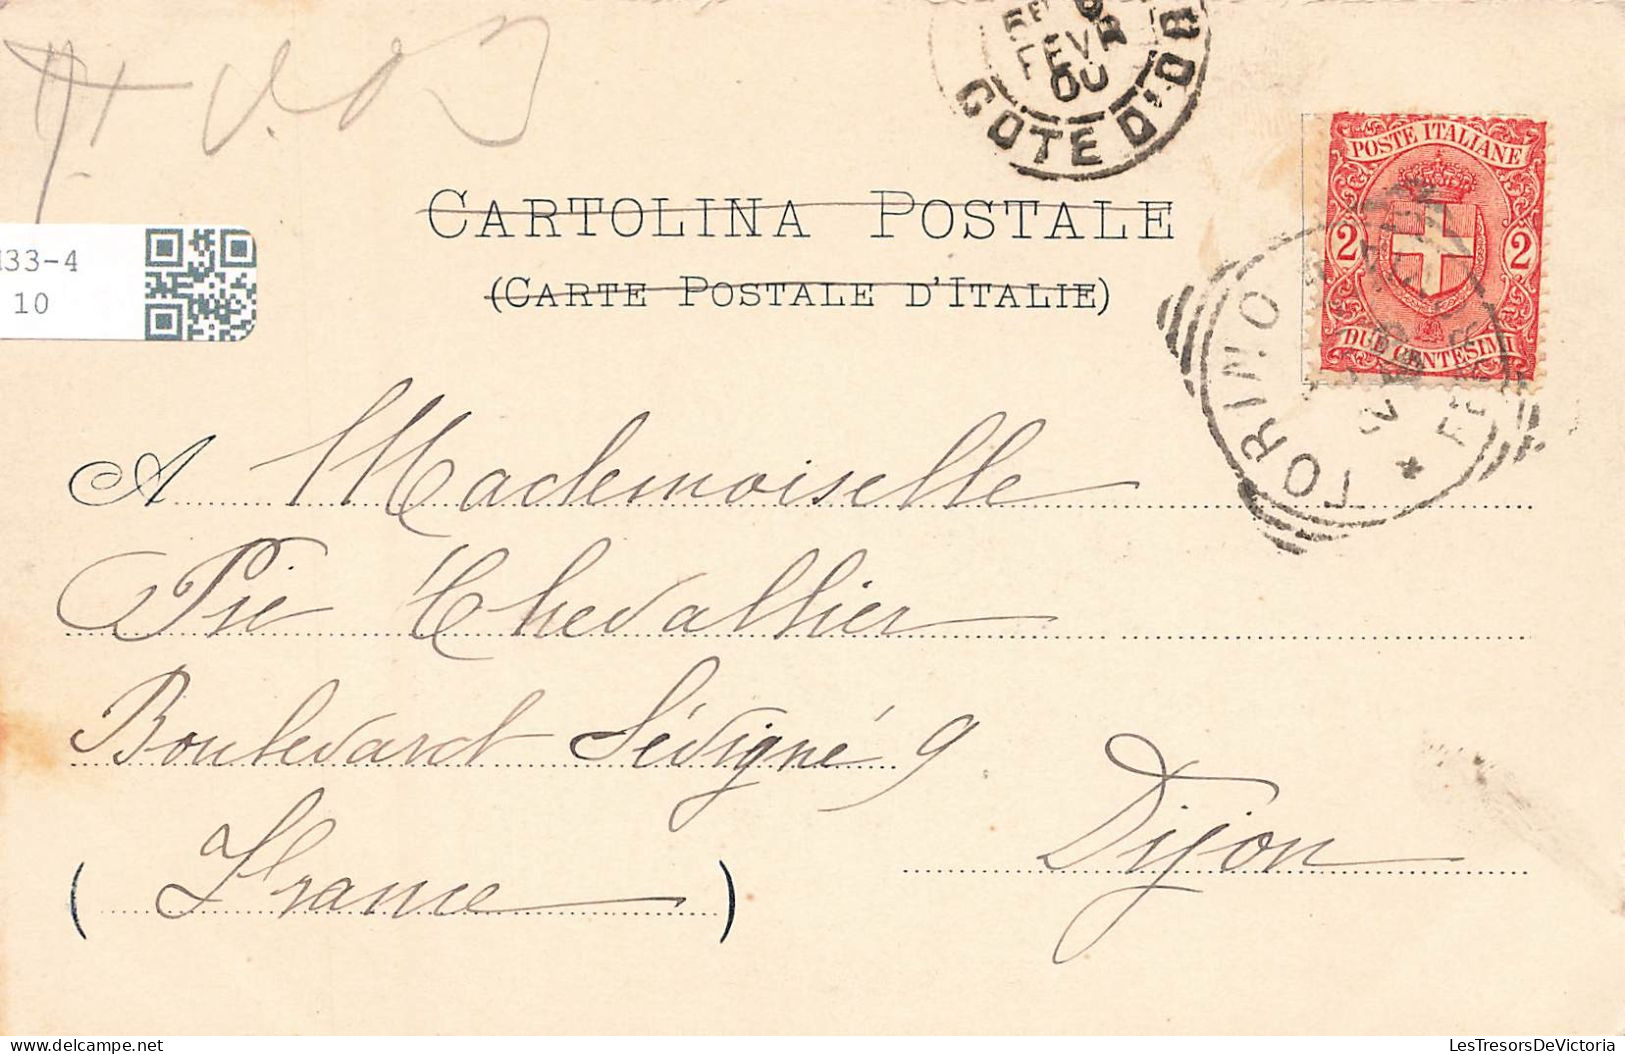 FEVR
00
COTE D'OR
CARTOLINA POSTALE
(CARTE POSTALE D'ITALIE)
POSTE ITALIANE
2 2
DUE CENTESIMI
TORINO
33-4
10
A Mademoiselle
Pie Chevallier
Boulevard Sévigné 9
Dijon
(France)
LesTresorsDeVictoria